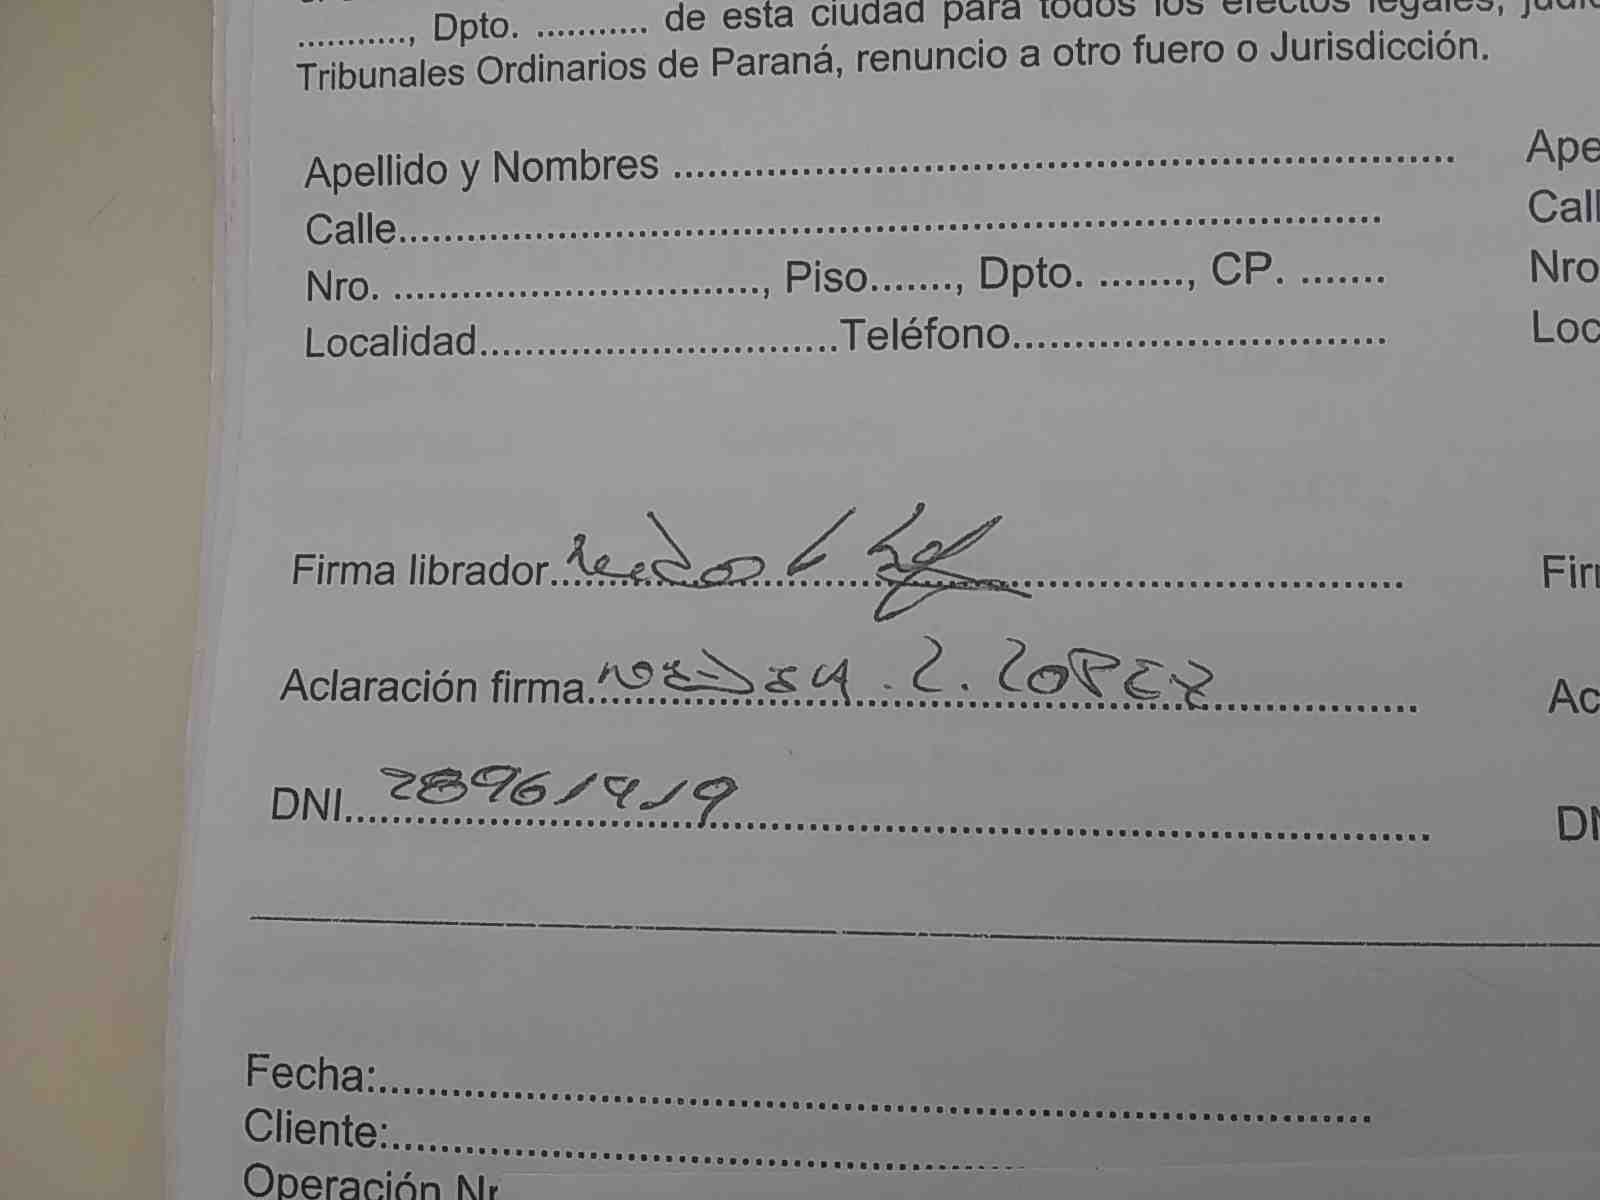 ..........., Dpto. ........... de esta ciudad para todos los efectos legales,
Tribunales Ordinarios de Paraná, renuncio a otro fuero o Jurisdicción.
Apellido y Nombres .................................................................... Ape
Calle..................................................................................... Call
Nro. ................................, Piso......., Dpto. ......., CP. ....... Nro
Localidad...............................Teléfono................................ Loc
Firma librador............................................................ Fir
Aclaración firma.......... . L. LOPEZ .................. Ac
DNI....28961419............................................ DN
Fecha:.....................................................................................
Cliente:.......................................................
Operación Nr